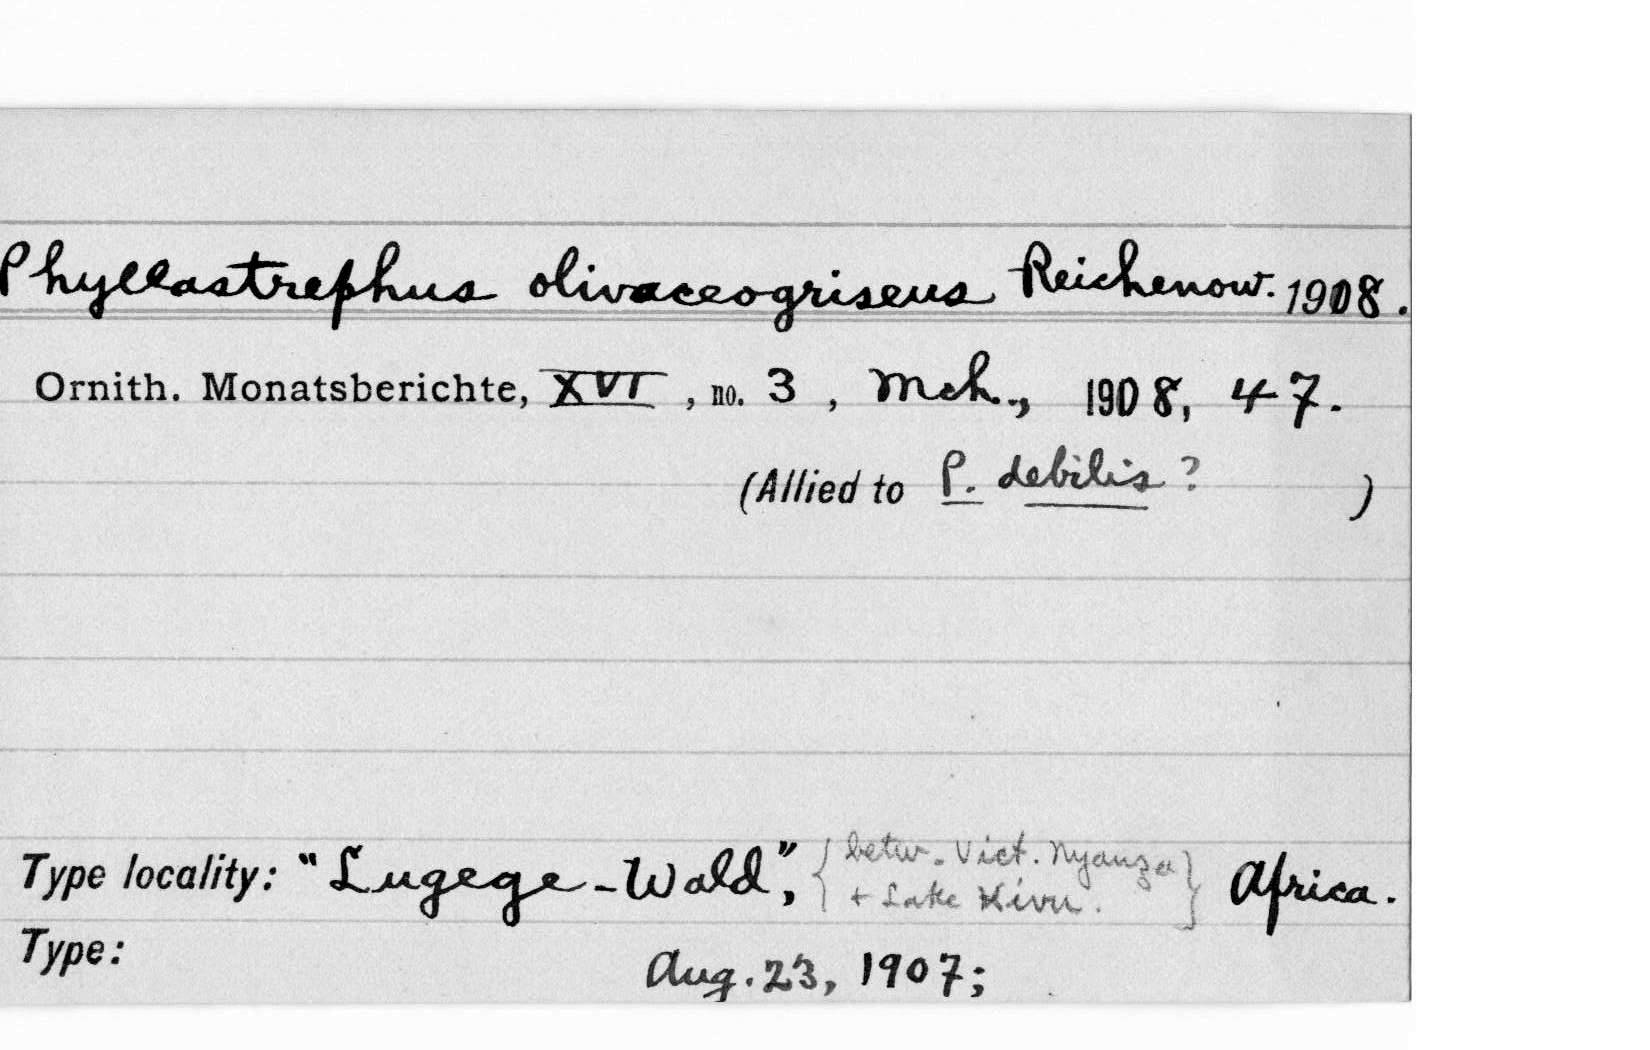 Phyllastrephus olivaceogriseus Reichenow. 1908.
Ornith. Monatsberichte, XVI, no. 3, Mch., 1908, 47.
(Allied to P. debilis ? )
Type locality: "Lugege-Wald", {betw. Vict. Nyanza + Lake Kivu.} Africa.
Type: Aug. 23, 1907;